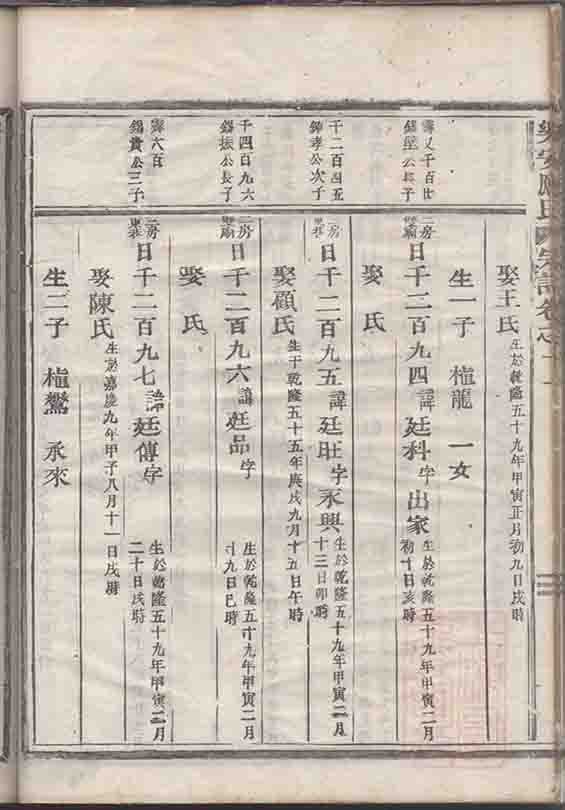 娶王氏 生於乾隆五十九年甲寅正月初九日戌時
生一子 植龍 一女
二房
日千二百九四 諱廷科 字 出家 生於乾隆五十九年甲寅二月初十日亥時
娶 氏
千二百四五
錦孝公次子
日千二百九五 諱廷旺 字永興 生於乾隆五十九年甲寅二月十三日卯時
娶顧氏 生于乾隆五十五年庚戌九月十五日午時
千四百九六
錫振公長子
二房
日千二百九六 諱廷品 字 生於乾隆五十九年甲寅二月十九日巳時
娶 氏
霽六百
錫貴公三子
二房
日千二百九七 諱廷傳 字 生於乾隆五十九年甲寅二月二十日戌時
娶陳氏 生於嘉慶九年甲子八月十一日戌時
生二子 植鶯 承來